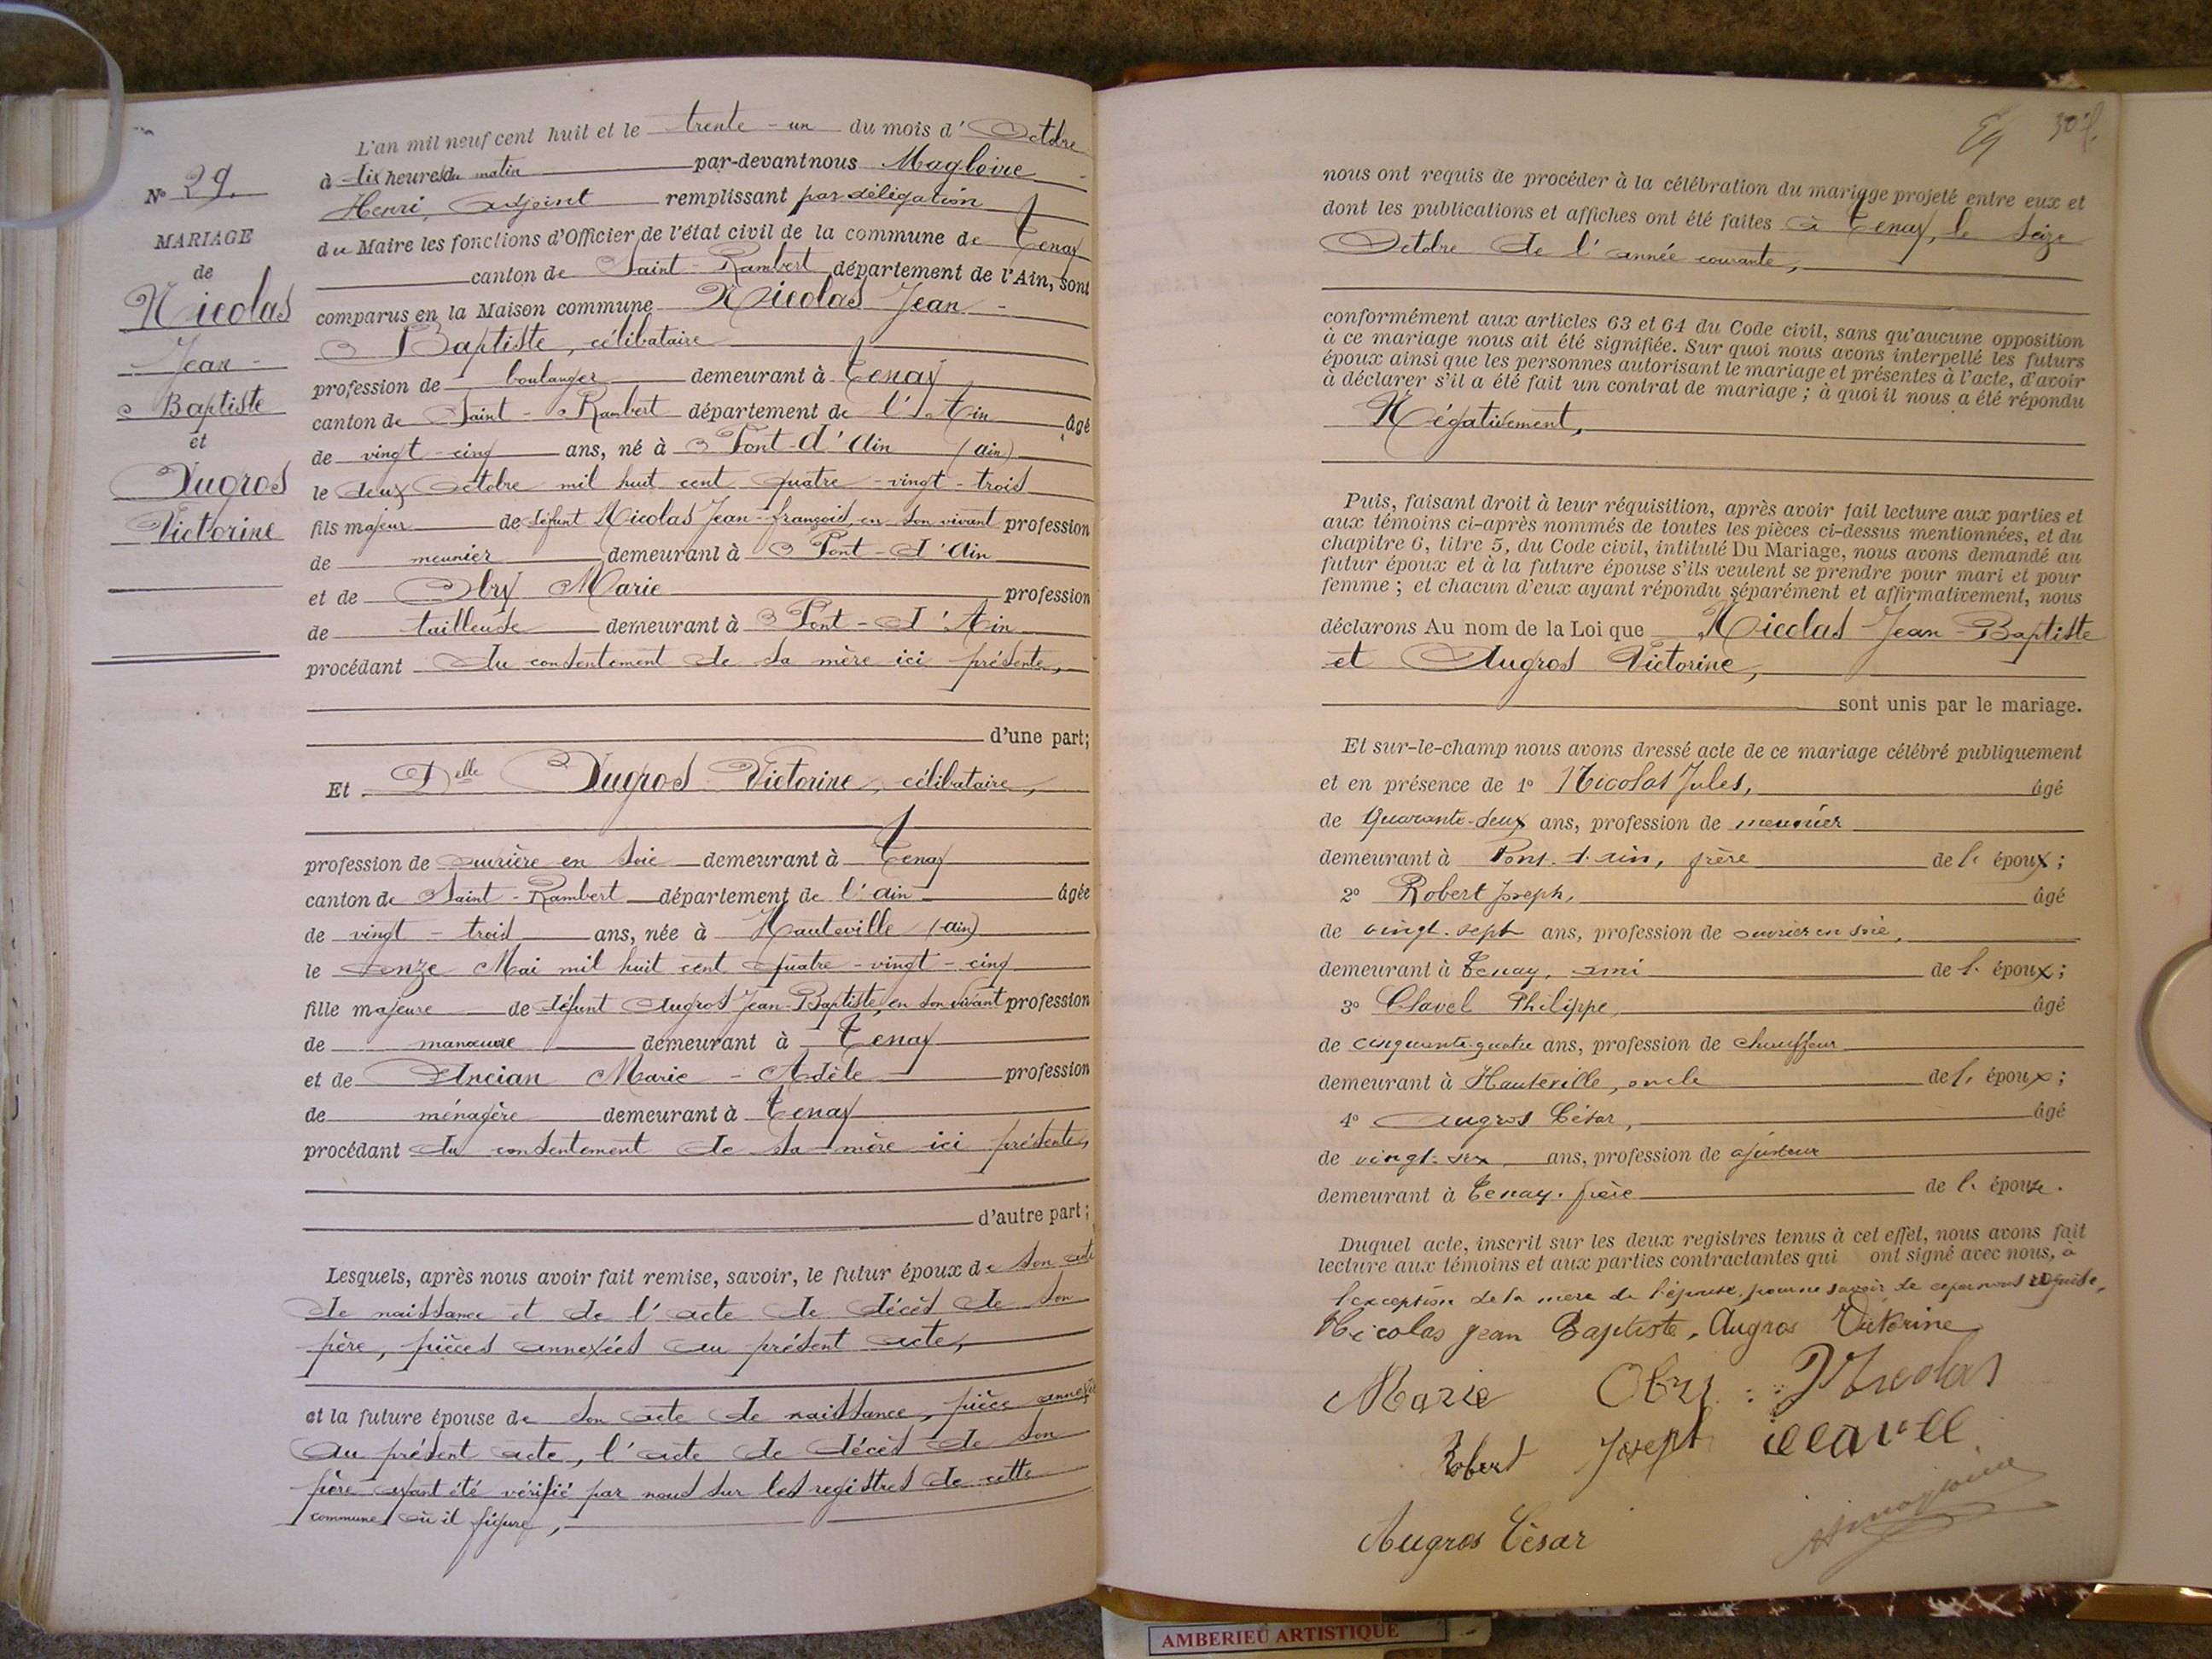 L'an mil neuf cent huit et le trente-un du mois d'Octobre
à dix heures du matin par-devant nous Magloire
Henri, adjoint remplissant par délégation
du Maire les fonctions d'Officier de l'état civil de la commune de Tenay
canton de Saint-Rambert département de l'Ain, sont
comparus en la Maison commune Nicolas Jean-
Baptiste, célibataire
profession de boulanger demeurant à Tenay
canton de Saint-Rambert département de l'Ain âgé
de vingt-cinq ans, né à Pont-d'Ain (ain)
le deux Octobre mil huit cent quatre-vingt-trois
fils majeur de défunt Nicolas Jean-françois, en son vivant profession
de meunier demeurant à Pont-d'Ain
et de Obry Marie profession
de tailleuse demeurant à Pont-d'Ain
procédant du consentement de sa mère ici présente,
d'une part;
Et Delle Augros Victorine, célibataire,
profession de ouvrière en soie demeurant à Tenay
canton de Saint-Rambert département de l'ain âgée
de vingt-trois ans, née à Hauteville (ain)
le onze Mai mil huit cent quatre-vingt-cinq
fille majeure de défunt Augros Jean-Baptiste, en son vivant profession
de manœuvre demeurant à Tenay
et de Ancian Marie-Adèle profession
de ménagère demeurant à Tenay
procédant du consentement de sa mère ici présente,
d'autre part;
Lesquels, après nous avoir fait remise, savoir, le futur époux de son acte
de naissance et de l'acte de décès de son
père, pièces annexées au présent acte,
et la future épouse de son acte de naissance, pièce annexée
au présent acte, l'acte de décès de son
père ayant été vérifié par nous sur les registres de cette
commune où il figure,
No 29.
MARIAGE
de
Nicolas
Jean-
Baptiste
et
Augros
Victorine
nous ont requis de procéder à la célébration du mariage projeté entre eux et
dont les publications et affiches ont été faites à Tenay, le seize
Octobre de l'année courante,
conformément aux articles 63 et 64 du Code civil, sans qu'aucune opposition
à ce mariage nous ait été signifiée. Sur quoi nous avons interpellé les futurs
époux ainsi que les personnes autorisant le mariage et présentes à l'acte, d'avoir
à déclarer s'il a été fait un contrat de mariage; à quoi il nous a été répondu
Négativement,
Puis, faisant droit à leur réquisition, après avoir fait lecture aux parties et
aux témoins ci-après nommés de toutes les pièces ci-dessus mentionnées, et du
chapitre 6, titre 5, du Code civil, intitulé Du Mariage, nous avons demandé au
futur époux et à la future épouse s'ils veulent se prendre pour mari et pour
femme; et chacun d'eux ayant répondu séparément et affirmativement, nous
déclarons Au nom de la Loi que Nicolas Jean-Baptiste
et Augros Victorine,
sont unis par le mariage.
Et sur-le-champ nous avons dressé acte de ce mariage célébré publiquement
et en présence de 1º Nicolas Jules, âgé
de Quarante-deux ans, profession de meunier
demeurant à Pont-d'ain, frère de l' époux;
2º Robert Joseph, âgé
de vingt-sept ans, profession de ouvrier en soie,
demeurant à Tenay, ami de l' époux;
3º Clavel Philippe, âgé
de cinquante-quatre ans, profession de chauffeur
demeurant à Hauteville, oncle de l' époux;
4º Augros César, âgé
de vingt-six ans, profession de ajusteur
demeurant à Tenay. frère de l' épouse.
Duquel acte, inscrit sur les deux registres tenus à cet effet, nous avons fait
lecture aux témoins et aux parties contractantes qui ont signé avec nous, à
l'exception de la mère de l'épouse, pour ne savoir de ce par nous requise,
Nicolas Jean Baptiste, Augros Victorine
Marie Obry Nicolas
Robert Joseph Clavel
Augros César
AMBERIEU ARTISTIQUE